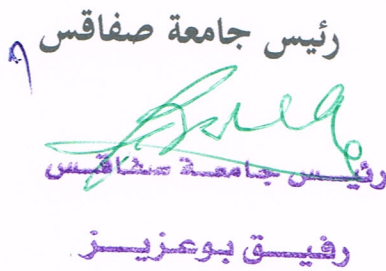 رئيس جامعة صفاقس
رئيس جامعة صفاقس
رفيق بوعزيز